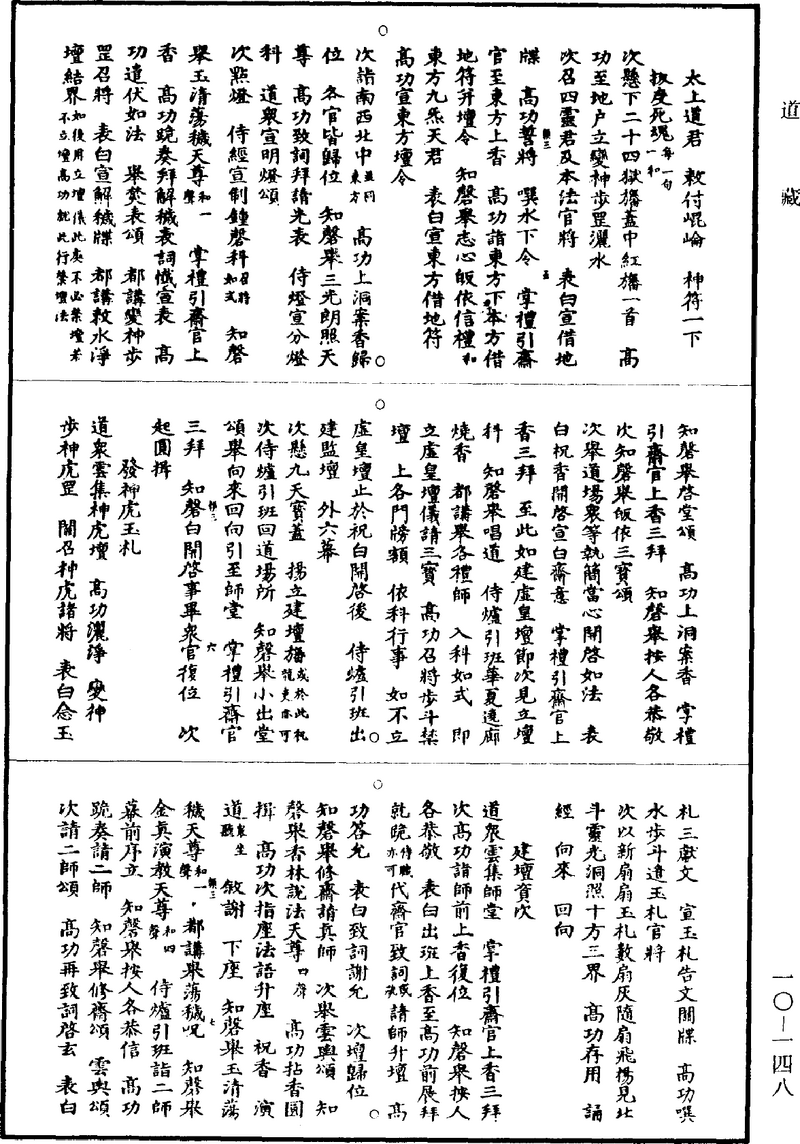 道藏
太上道君　敕付崐崙　神符一下
拔度死魂每一句一和
次懸下二十四獄旛蓋中紅旛一首　高
功至地戶立變神步罡灑水
次召四靈君及本法官將　表白宣借地
牒　高功誓將　噀水下令　掌禮引齋
官至東方上香　高功詣東方下本方借
地符升壇令　知磬舉志心皈依信禮和
東方九炁天君　表白宣東方借地符
高功宣東方壇令
次詣南西北中並同東方　高功上洞案香歸
位　各官皆歸位　知磬舉三光朗照天
尊　高功致詞拜請光表　侍燈宣分燈
科　道眾宣明燈頌
次點燈　侍經宣制鐘磬科召將如式　知磬
舉玉清蕩穢天尊和一聲　掌禮引齋官上
香　高功跪奏拜解穢表詞懺宣表　高
功遣伏如法　舉焚表頌　都講變神步
罡召將　表白宣解穢牒　都講敕水淨
壇結界如後用立壇儀此處不必禁壇若不立壇高功就此行禁壇法
知磬舉啓堂頌　高功上洞案香　掌禮
引齋官上香三拜　知磬舉按人各恭敬
次知磬舉皈依三寶頌
次舉道場眾等執簡當心開啓如法　表
白祝香開啓宣白齋意　掌禮引齋官上
香三拜　至此如建虛皇壇節次見立壇
科　知磬舉唱道　侍爐引班華夏遶廊
燒香　都講舉各禮師　入科如式　即
立虛皇壇儀請三寶　高功召將步斗禁
壇　上各門牓額　依科行事　如不立
虛皇壇止於祝白開啓後　侍爐引班出
建監壇　外六幕
次懸九天寶蓋　揚立建壇旛或於此札號吏亦可
次侍爐引班回道場所　知磬舉小出堂
頌舉向來回向引至師堂　掌禮引齋官
三拜　知磬白開啓事畢眾官復位　次
起圓揖
發神虎玉札
道眾雲集神虎壇　高功灑淨　變神
步神虎罡　關召神虎諸將　表白念玉
札三獻文　宣玉札告文關牒　高功噀
水步斗遣玉札官將
次以新扇扇玉札數扇灰隨扇飛揚見北
斗靈光洞照十方三界　高功存用　誦
經　向來　回向
建壇資次
道眾雲集師堂　掌禮引齋官上香三拜
次高功詣師前上香復位　知磬舉按人
各恭敬　表白出班上香至高功前展拜
就跪侍職亦可代齋官致詞或讀請師升壇　高
功答允　表白致詞謝允　次壇歸位
知磬舉修齋請真師　次舉雲輿頌　知
磬舉香林說法天尊四聲　高功拈香圓
揖　高功次指座法語升座　祝香　演
道眾生　敘謝　下座　知磬舉玉清蕩
穢天尊和一聲　都講舉蕩穢呪　知磬舉
金真演教天尊和四聲　侍爐引班詣二師
幕前序立　知磬舉按人各恭信　高功
跪奏請二師　知磬舉修齋頌　雲輿頌
次請二師頌　高功再致詞啓玄　表白
一〇—一四八